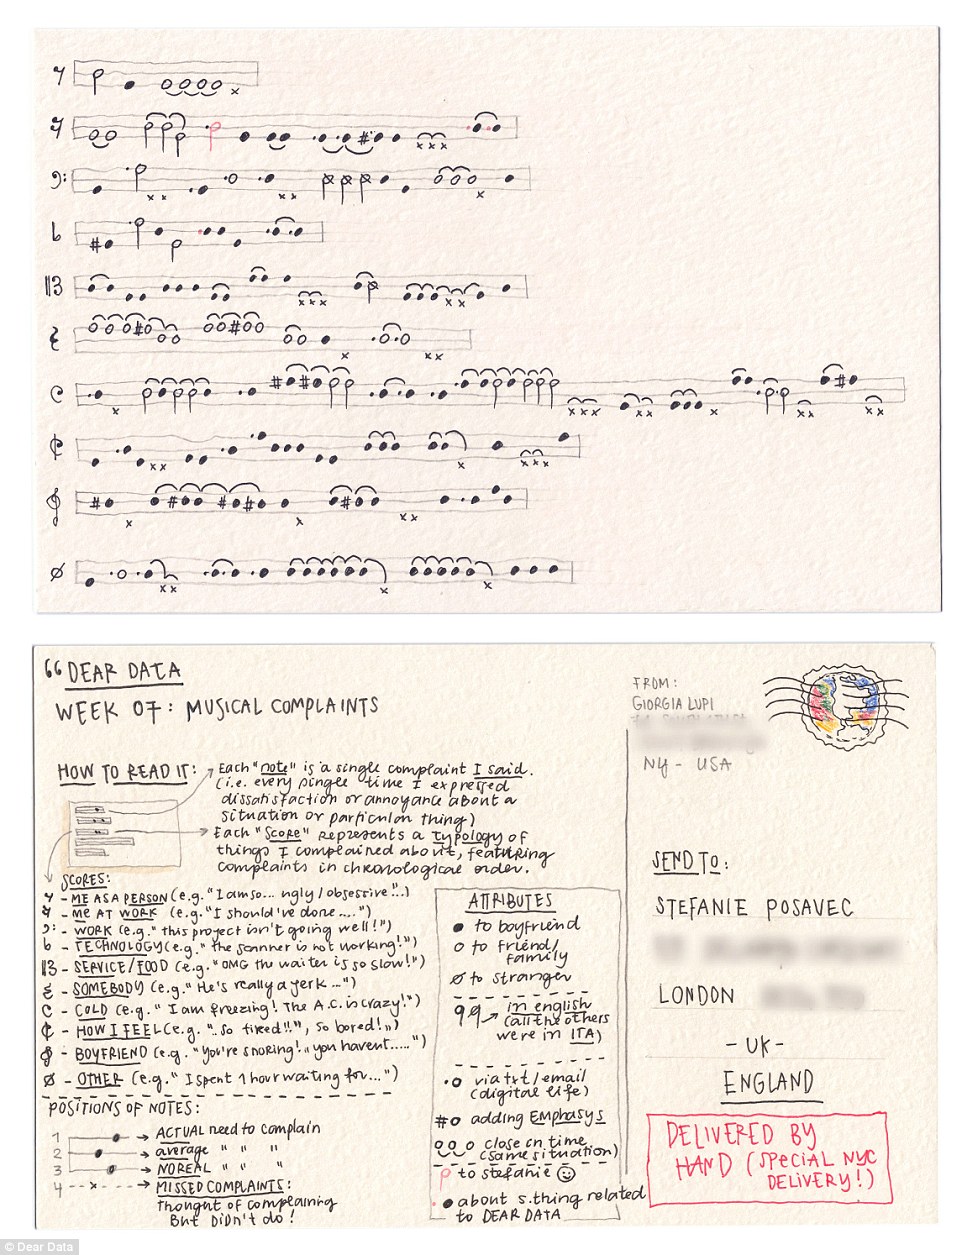 “ DEAR DATA
WEEK 07: MUSICAL COMPLAINTS
HOW TO READ IT:
Each "note" is a single complaint I said.
(i.e. every single time I expressed
dissatisfaction or annoyance about a
situation or particular thing)
Each "score" represents a typology of
things I complained about, featuring
complaints in chronological order.
SCORES:
- ME AS A PERSON (e.g. "I am so... ugly / obsessive"..)
- ME AT WORK (e.g. "I should've done....")
- WORK (e.g. "this project isn't going well!")
- TECHNOLOGY (e.g. "the scanner is not working!")
- SERVICE/FOOD (e.g. "OMG the waiter is so slow!")
- SOMEBODY (e.g. "He's really a jerk...")
- COLD (e.g. "I am freezing! The A.C. is crazy!")
- HOW I FEEL (e.g. "..so tired!!", so bored!")
- BOYFRIEND (e.g. "You're snoring!", you havent.....")
- OTHER (e.g. "I spent 1 hour waiting for...")
POSITIONS OF NOTES:
1 → ACTUAL need to complain
2 → average " " "
3 → NO REAL " " "
4 → MISSED COMPLAINTS:
thought of complaining
BUT DIDN'T do!
ATTRIBUTES
to boyfriend
to friend/
family
to stranger
in english
(all the others
were in ITA)
via txt / email
(digital life)
# adding EMPHASYS
close in time
(same situation)
to stefanie
about s.thing related
to DEAR DATA
FROM:
GIORGIA LUPI
NY - USA
SEND TO:
STEFANIE POSAVEC
LONDON
- UK -
ENGLAND
DELIVERED BY
HAND (SPECIAL NYC
DELIVERY!)
© Dear Data